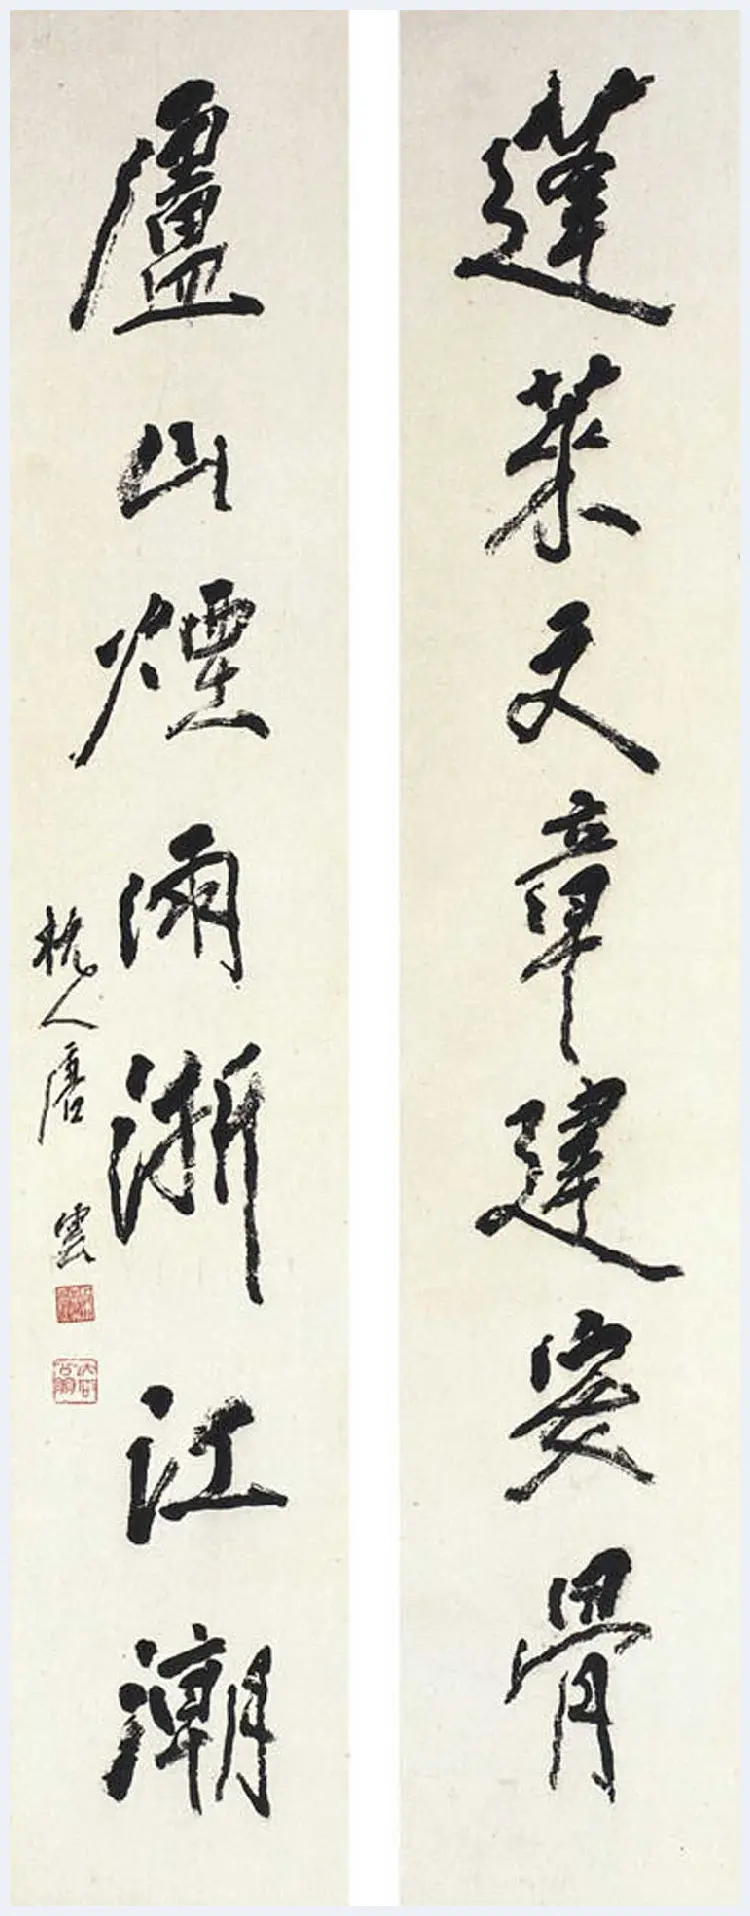 蓬萊文章建安骨
廬山煙雨浙江潮
杭人唐雲